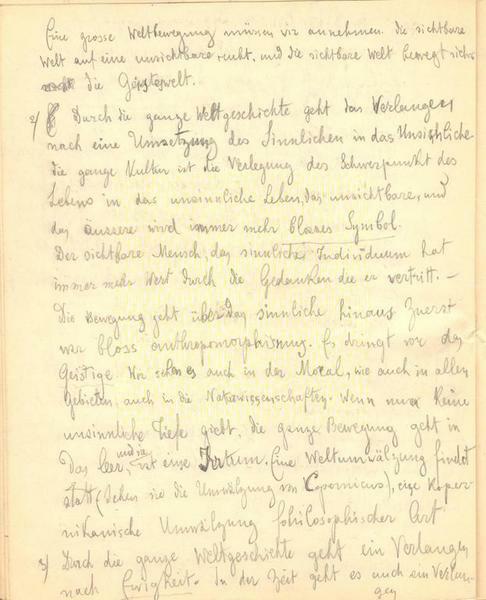 Eine grosse Weltbewegung müssen wir annehmen. die sichtbare
Welt auf eine unsichtbare ruht, und die sichtbare Welt bewegt sich
die Geisterwelt.
2) Durch die ganze Weltgeschichte geht das Verlangen
nach eine Umsetzung des Sinnlichen in das Unsichtliche
die ganze Kultur ist die Verlegung des Schwerpunkt des
Lebens in das unsinnliche Leben, das unsichtbare, und
das äussere wird immer mehr blosses Symbol.
Der sichtbare Mensch, das sinnliche Individuum hat
immer mehr Wert durch die Gedanken die er vertritt. –
Die Bewegung geht über das sinnliche hinaus Zuerst
war bloss anthropomorphismus. Es dringt vor das
Geistige. Wir sehen es auch in der Moral, wie auch in allen
Gebieten, auch in die Naturwissenschaften. Wenn nun keine
unsinnliche Tiefe giebt, die ganze Bewegung geht in
Das leer, und sie ist eine Irrtum. Eine Weltumwälzung findet
statt (Sehen sie die Umwälzung von Copernicus), eine Koper-
nikanische Umwälzung philosophischer Art
3) Durch die ganze Weltgeschichte geht ein Verlangen
nach Ewigkeit. In der Zeit geht es auch ein Verlan-
gen